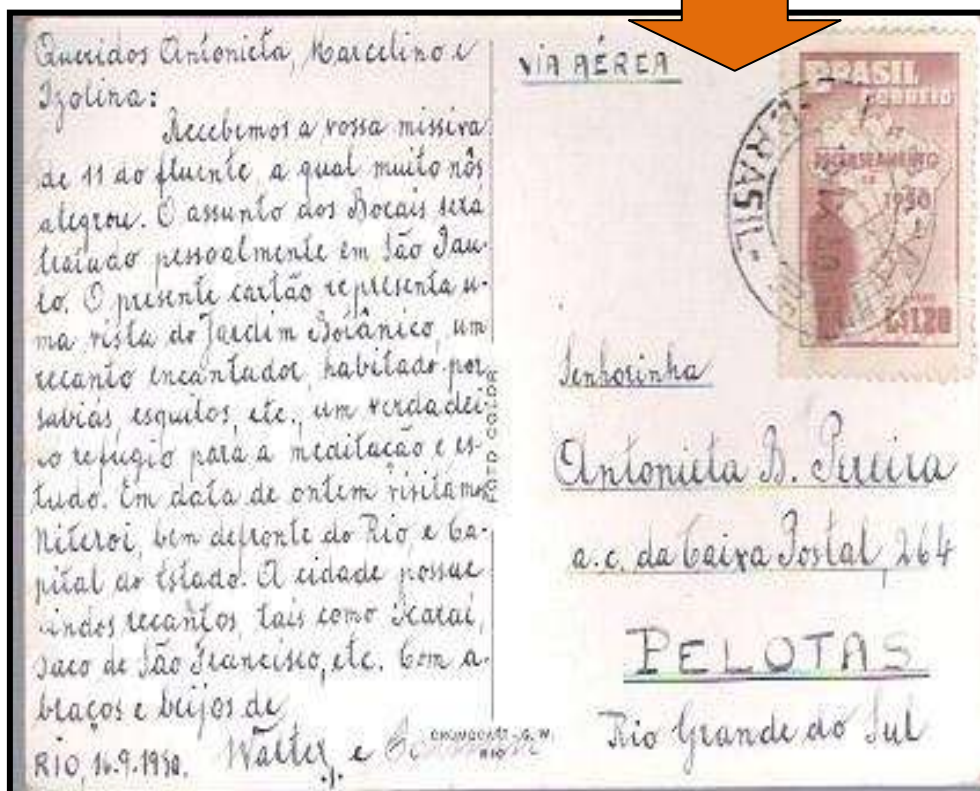 Queridos Antonieta, Marcelino e
Izolina:
Recebemos a vossa missiva
de 11 do fluente, a qual muito nos
alegrou. O assunto dos Bocais será
tratado pessoalmente em São Pau-
lo. O presente cartão representa u-
ma vista do Jardim Botânico, um
recanto encantador, habitado por
sabiás, esquilos, etc., um verdadei-
ro refúgio para a meditação e es-
tudo. Em data de ontem visitamos
Niteroi, bem defronte do Rio, e Ca-
pital do Estado. A cidade possue
lindos recantos, tais como Icaraí,
Saco de São Francisco, etc. Com a-
braços e beijos de
Walter e
RIO, 16.9.1950.
FOTO COLOR
RIO
VIA AÉREA
BRASIL
CORREIO
RECENSEAMENTO
DE
1950
Cr$1,20
BRASIL
Senhorinha
Antonieta B. Pereira
a.c. da Caixa Postal, 264
PELOTAS
Rio Grande do Sul